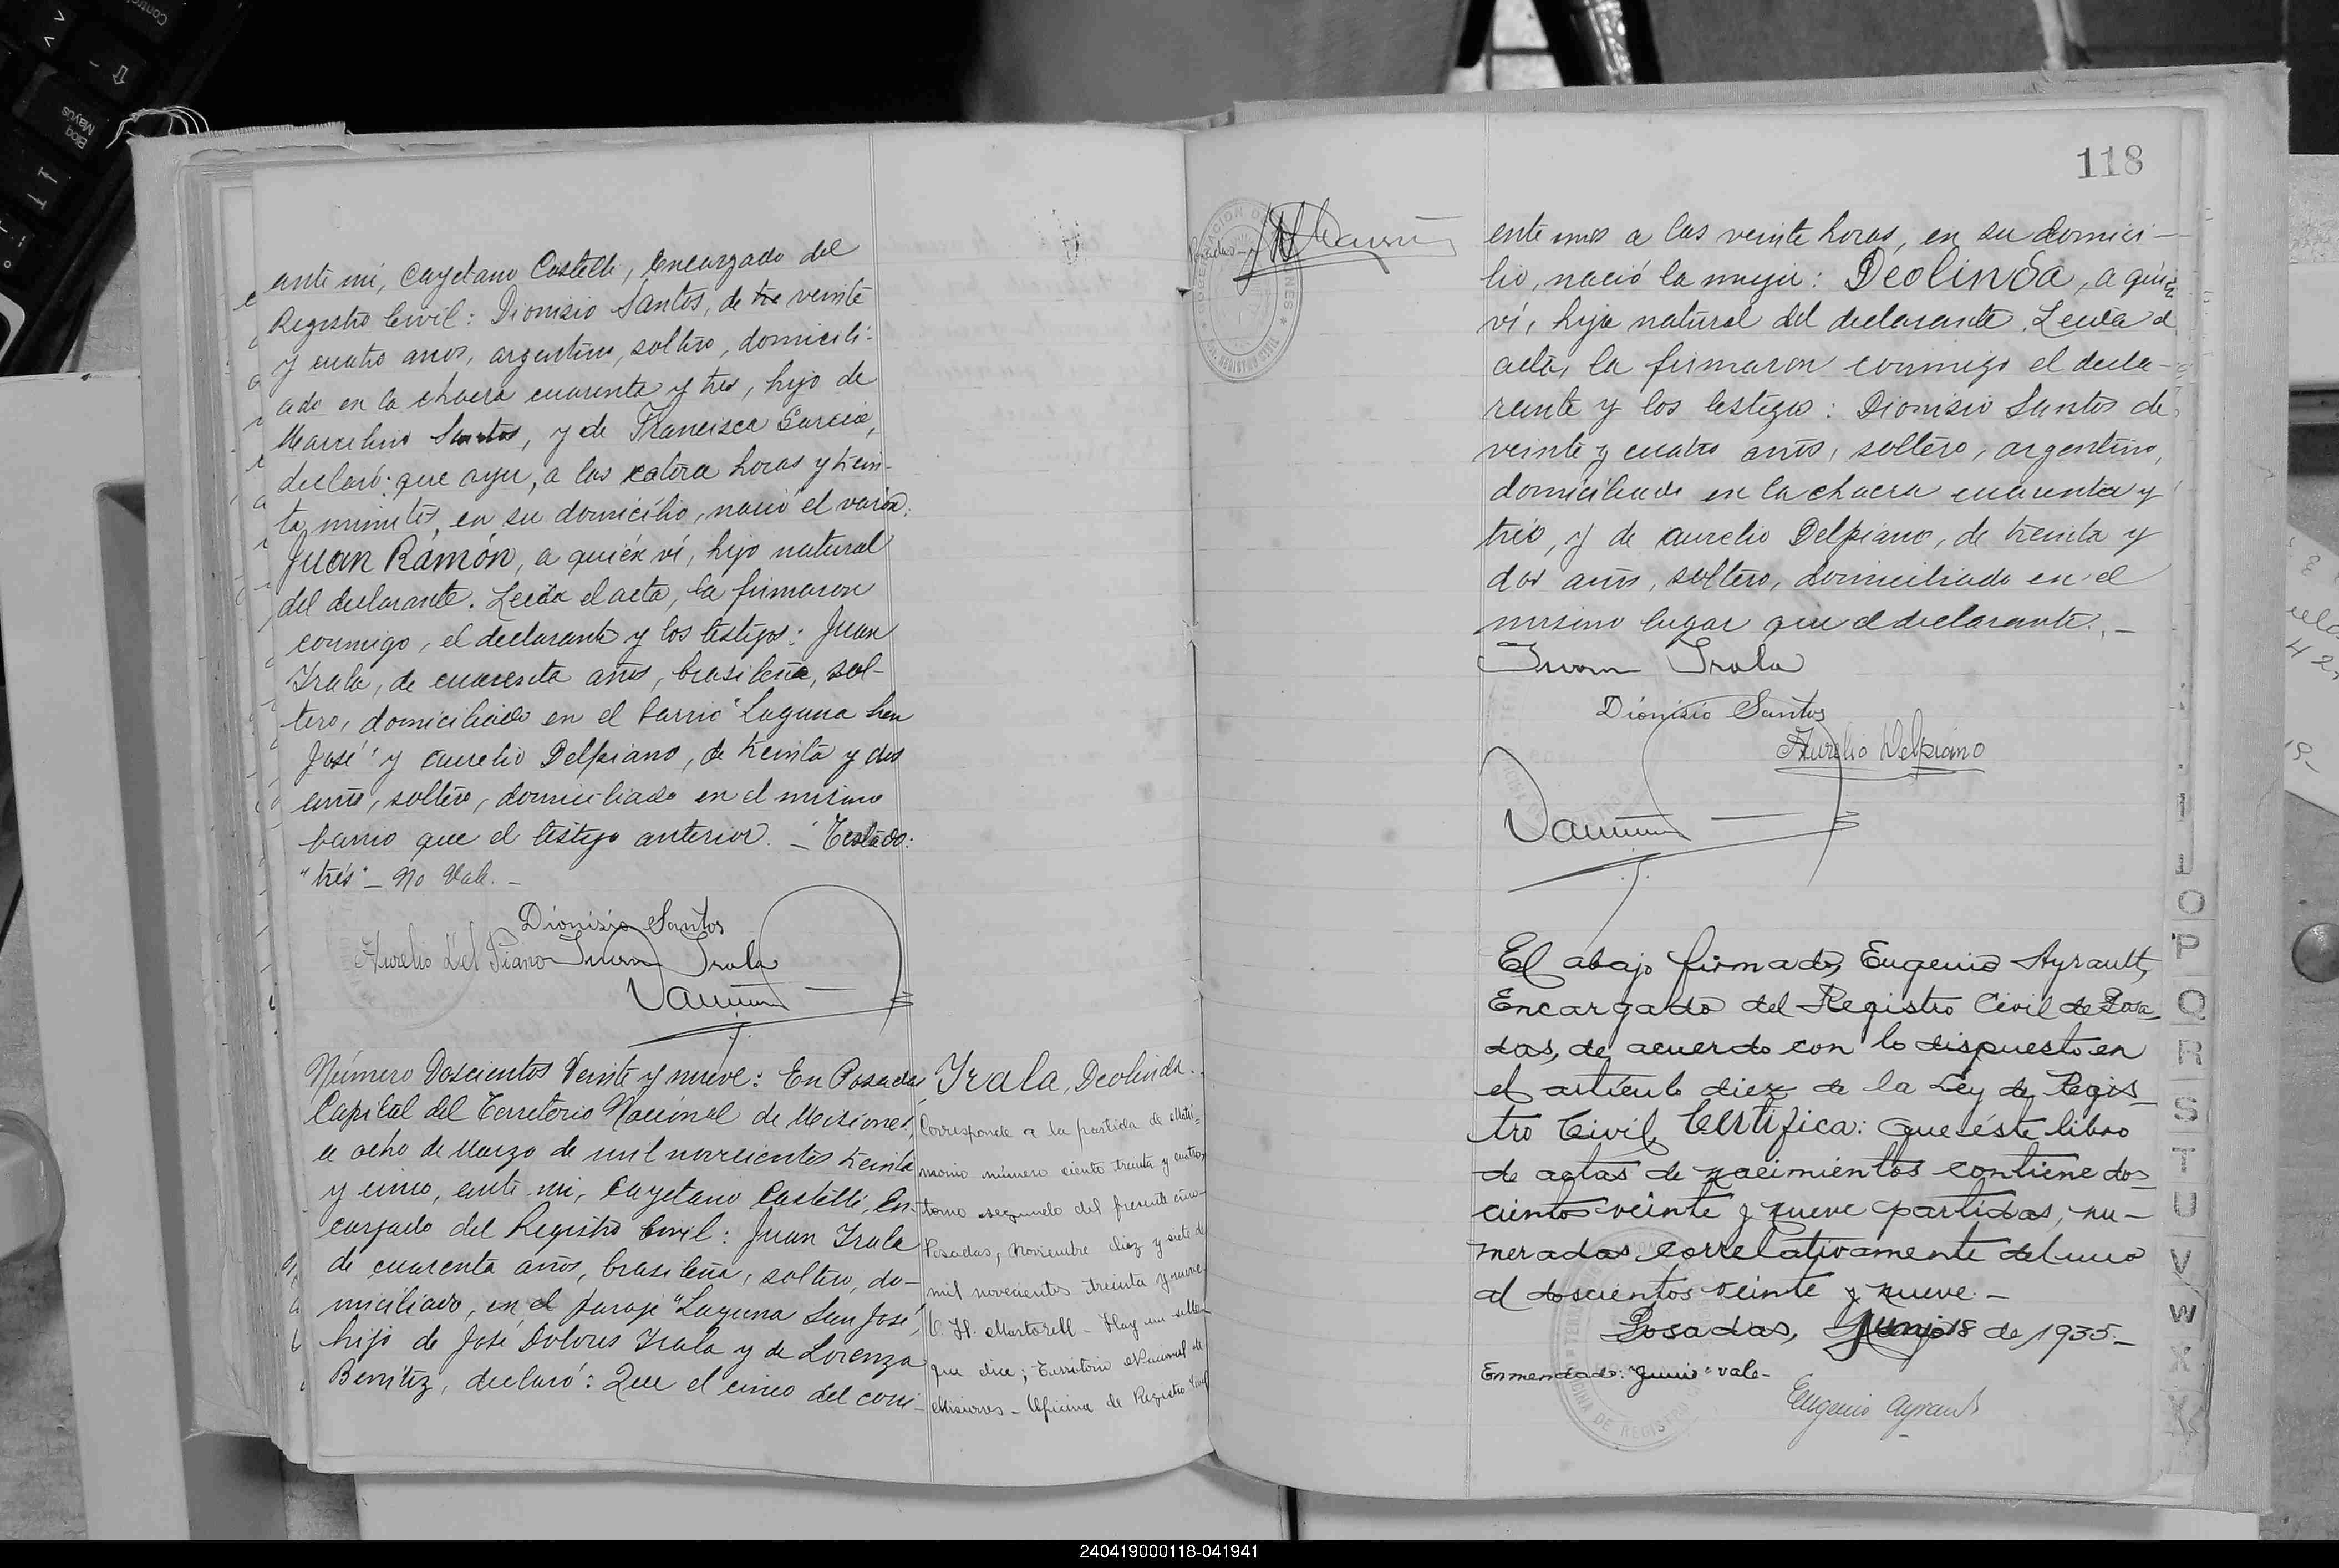 ante mi, Cayetano Castelli, Encargado del
Registro Civil: Dionisio Santos, de tre veinte
y cuatro años, argentino, soltero, domicili-
ado en la chacra cuarenta y tres, hijo de
Marcelino Santos, y de Francisca García,
declaró: que ayer, a las catorce horas y trein-
ta minutos, en su domicilio, nació el varón:
Juan Ramón, a quién ví, hijo natural
del declarante. Leída el acta, la firmaron
conmigo, el declarante y los testigos: Juan
Irala, de cuarenta años, brasileño, sol-
tero, domiciliado en el barrio "Laguna San
José" y Aurelio Delpiano, de treinta y dos
años, soltero, domiciliado en el mismo
barrio que el testigo anterior. - Testado:
"tres" - No Vale. -
Dionisio Santos
Aurelio Del Piano Juan Irala
Número Doscientos Veinte y nueve: En Posadas,
Capital del Territorio Nacional de Misiones,
a ocho de Marzo de mil novecientos treinta
y cinco, ante mi, Cayetano Castelli, En-
cargado del Registro Civil: Juan Irala
de cuarenta años, brasileño, soltero, do-
miciliado, en el paraje "Laguna San José",
hijo de José Dolores Irala y de Lorenza
Benítez, declaró: Que el cinco del corri-
Irala, Deolinda.
Corresponde a la partida de Matri-
monio número ciento treinta y cuatro,
tomo segundo del presente año-
Posadas, Noviembre diez y siete de
mil novecientos treinta y nueve
C. H. Martorell - Hay un sello
que dice; Territorio Nacional de
Misiones - Oficina de Registro Civil
Posadas -
118
ente mes a las veinte horas, en su domici-
lio, nació la mujer: Deolinda, a quién
ví, hija natural del declarante. Leída el
acta, la firmaron conmigo el decla-
rante y los testigos: Dionisio Santos de
veinte y cuatro años, soltero, argentino,
domiciliado en la chacra cuarenta y
tres, y de Aurelio Delpiano, de treinta y
dos años, soltero, domiciliado en el
mismo lugar que el declarante. -
Juan Irala
Dionisio Santos
Aurelio Delpiano
El abajo firmado, Eugenio Ayrault,
Encargado del Registro Civil de Posa-
das, de acuerdo con lo dispuesto en
el artículo diez de la Ley de Regis-
tro Civil, Certifica: Que éste libro
de actas de nacimientos contiene dos-
cientos veinte y nueve partidas, nu-
meradas correlativamente del uno
al doscientos veinte y nueve. -
Posadas, Junio 18 de 1935. -
Enmendado: "Junio" vale -
Eugenio Ayrault
O
P
Q
R
S
T
U
V
W
X
240419000118-041941